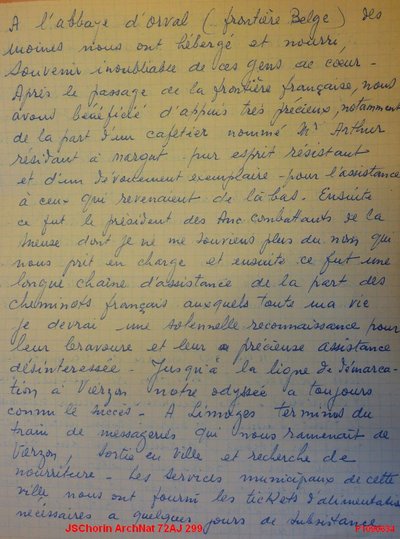 A l'abbaye d'orval (frontière Belge) des
moines nous ont hébergé et nourri,
Souvenir inoubliable de ces gens de coeur -
Après le passage de la frontière française, nous
avons bénéficié d'appuis très précieux, notamment
de la part d'un cafetier nommé Mr Arthur
résidant à margut - pur esprit résistant
et d'un dévouement exemplaire - pour l'assistance
à ceux qui revenaient de là bas. Ensuite
ce fut le président des Anc combattants de la
Meuse dont je ne me souviens plus du nom qui
nous prit en charge et ensuite ce fut une
longue chaîne d'assistance de la part des
cheminots français auxquels toute ma vie
je devrai une solennelle reconnaissance pour
leur bravoure et leur précieuse assistance
désintéressée - Jusqu'à la ligne de démarca-
tion à Vierzon notre odyssée a toujours
connu le succès - A Limoges terminus du
train de messageries qui nous ramenait de
Vierzon, sortie en ville et recherche de
nourriture - Les services municipaux de cette
ville nous ont fourni les tickets d'alimentation
nécessaires a quelques jours de subsistance
JSChorin ArchNat 72AJ 299